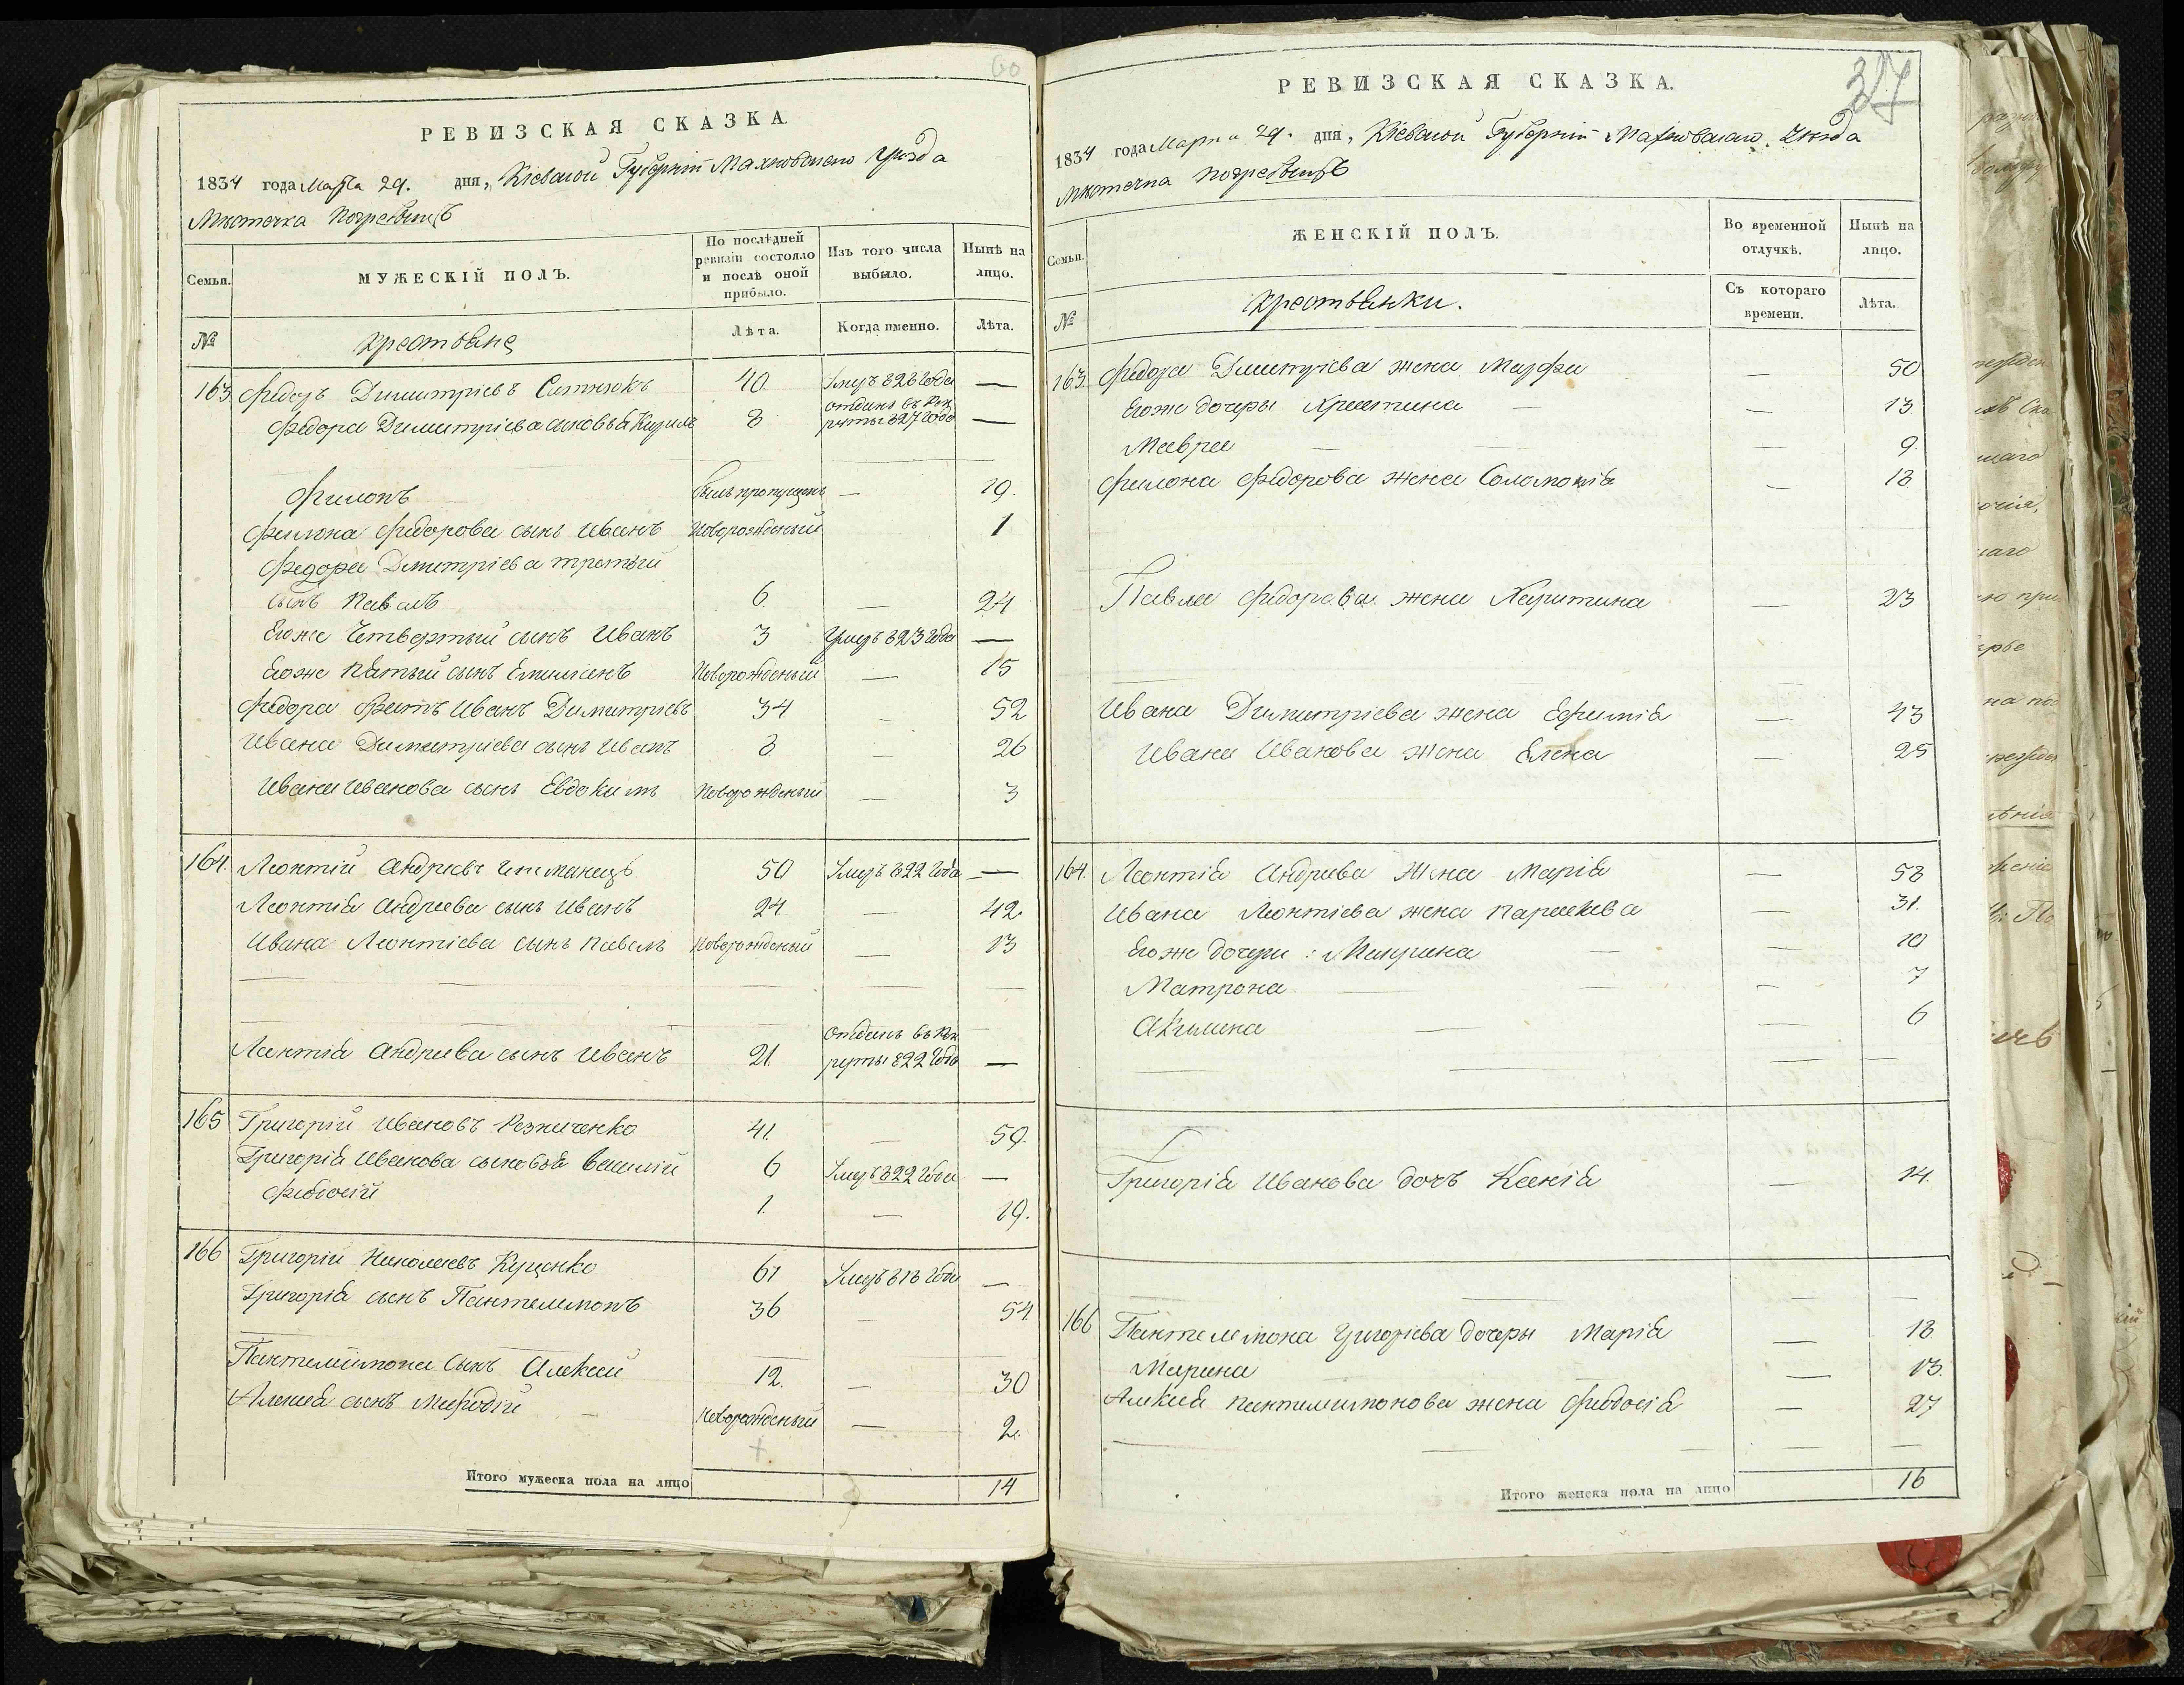 60
РЕВИЗСКАЯ СКАЗКА
1834 года Марта 29. дня, Кіевской Губерніи Махновскаго Уѣзда
Мѣстечка Погребищъ
Семьи.
МУЖЕСКІЙ ПОЛЪ.
По послѣдней ревизіи состояло и послѣ оной прибыло.
Изъ того числа выбыло.
Нынѣ на лицо.
№
Крестьяне
Лѣта.
Когда именно.
Лѣта.
163 Федоръ Димитріевъ 40 Умеръ 826 Года —
Федора Димитріева сыновья Кирилъ 8 отданъ въ Рек
руты 827 Года —
Филонъ былъ пропущенъ — 29.
Филона Федорова сынъ Иванъ Новорожденый 1
Федора Дмитріева третый
сынъ Павелъ 6 — 24
Егоже Четвертый сынъ Иванъ 3 Умеръ 823 Года —
Егоже Пятый сынъ Емилианъ Новорожденый — 15
Федора братъ Иванъ Димитріевъ 34 — 52
Ивана Димитріева сынъ Иванъ 8 — 26
Ивана Иванова сынъ Евдокимъ Новорожденый — 3
164. Леонтій Андреевъ 50 Умеръ 822 Года —
Леонтія Андреева сынъ Иванъ 24 — 42.
Ивана Леонтіева сынъ Павелъ Новорожденый — 13
Отданъ въ Рек
Леонтія Андреева сынъ Иванъ 21. руты 822 Года —
165 Григорій Ивановъ Резниченко 41. — 59.
Григорія Иванова сыновья Василій 6 Умеръ 822 Года —
Феодосій 1. — 19.
166 Григорій Николаевъ Куценко 61 Умеръ 818 Года —
Григорія сынъ Пантелимонъ 36 — 54
Пантелиимона Сынъ Алексей 12. — 30
Алексея сынъ Мефодій — Новорожденый — 2.
Итого мужеска пола на лицо 14
37
РЕВИЗСКАЯ СКАЗКА.
1834 года Марта 29. дня, Кіевской Губерніи Махновскаго Уѣзда
Мѣстечка Погребищъ
Семьи.
ЖЕНСКІЙ ПОЛЪ.
Во временной отлучкѣ.
Нынѣ на лицо.
№
Крестьянки.
Съ котораго времени.
Лѣта.
163. Федора Димитріева жена Марфа — 50
Егоже дочеры Христина — — 13
Мавра — — 9.
Филона Федорова жена Соломонія — 18
Павла Федорова жена Харитина — 23
Ивана Димитріева жена Ефимія — 43
Ивана Иванова жена Елена — 25
164. Леонтія Андреева Жена Марія — 58
Ивана Леонтіева жена Параскева — 31.
Егоже дочери: Макрина — — 10
Матрона — — — 7
Акилина — — 6
Григорія Иванова дочь Ксенія — 14.
166 Пантелимона Григоріева дочеры Марія — 18
Марина — — 13.
Алексея Пантилимонова жена Феодосія — 27
Итого женска пола на лицо 16